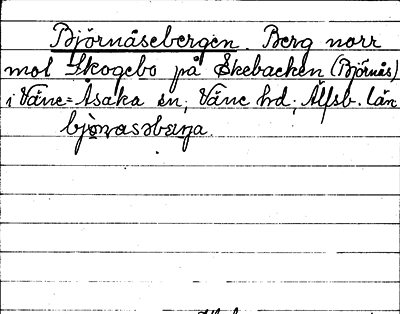 Björnåsebergen. Berg norr
mot Skogebo på Ekebacken (Björnås)
i Väne-Åsaka sn, Väne hd, Älfsb. län
bjö̀nasəbærja.